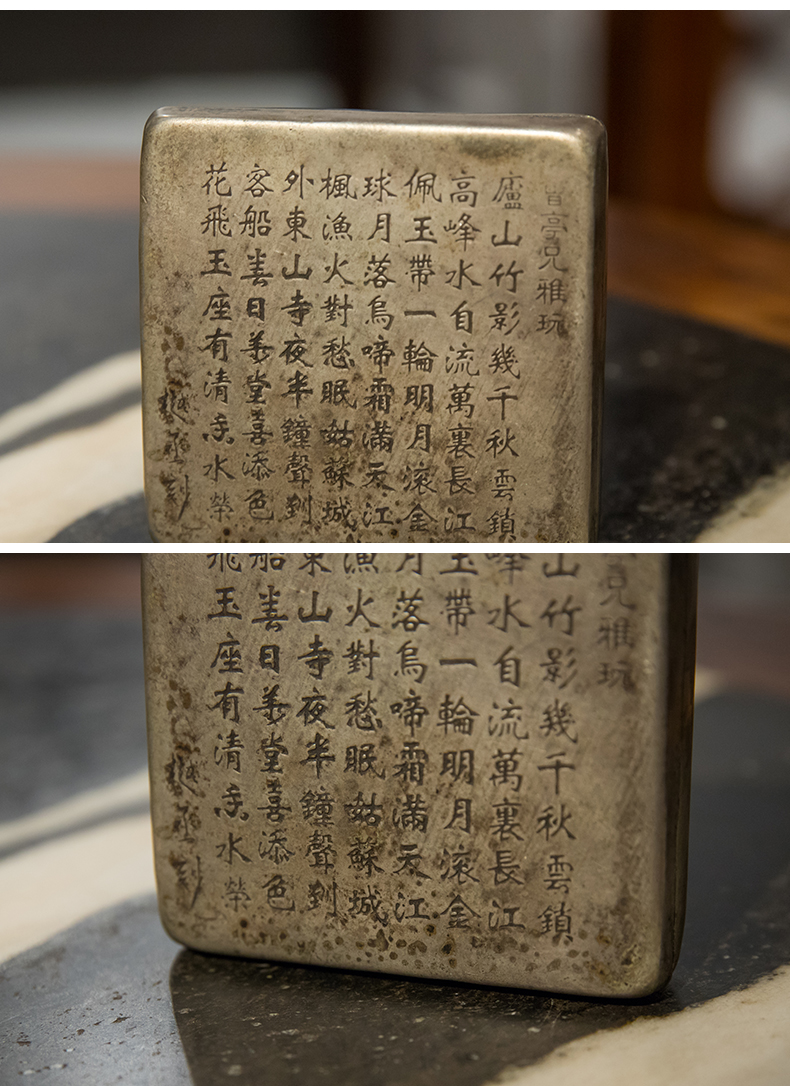 亭兄雅玩
廬山竹影幾千秋雲鎖
高峰水自流萬裏長江
佩玉帶一輪明月滾金
球月落烏啼霜滿天江
楓漁火對愁眠姑蘇城
外東山寺夜半鐘聲到
客船春日華堂喜添色
花飛玉座有清香水
兄雅玩
山竹影幾千秋雲鎖
峰水自流萬裏長江
玉帶一輪明月滾金
月落烏啼霜滿天江
漁火對愁眠姑蘇城
東山寺夜半鐘聲到
船春日華堂喜添色
飛玉座有清香水